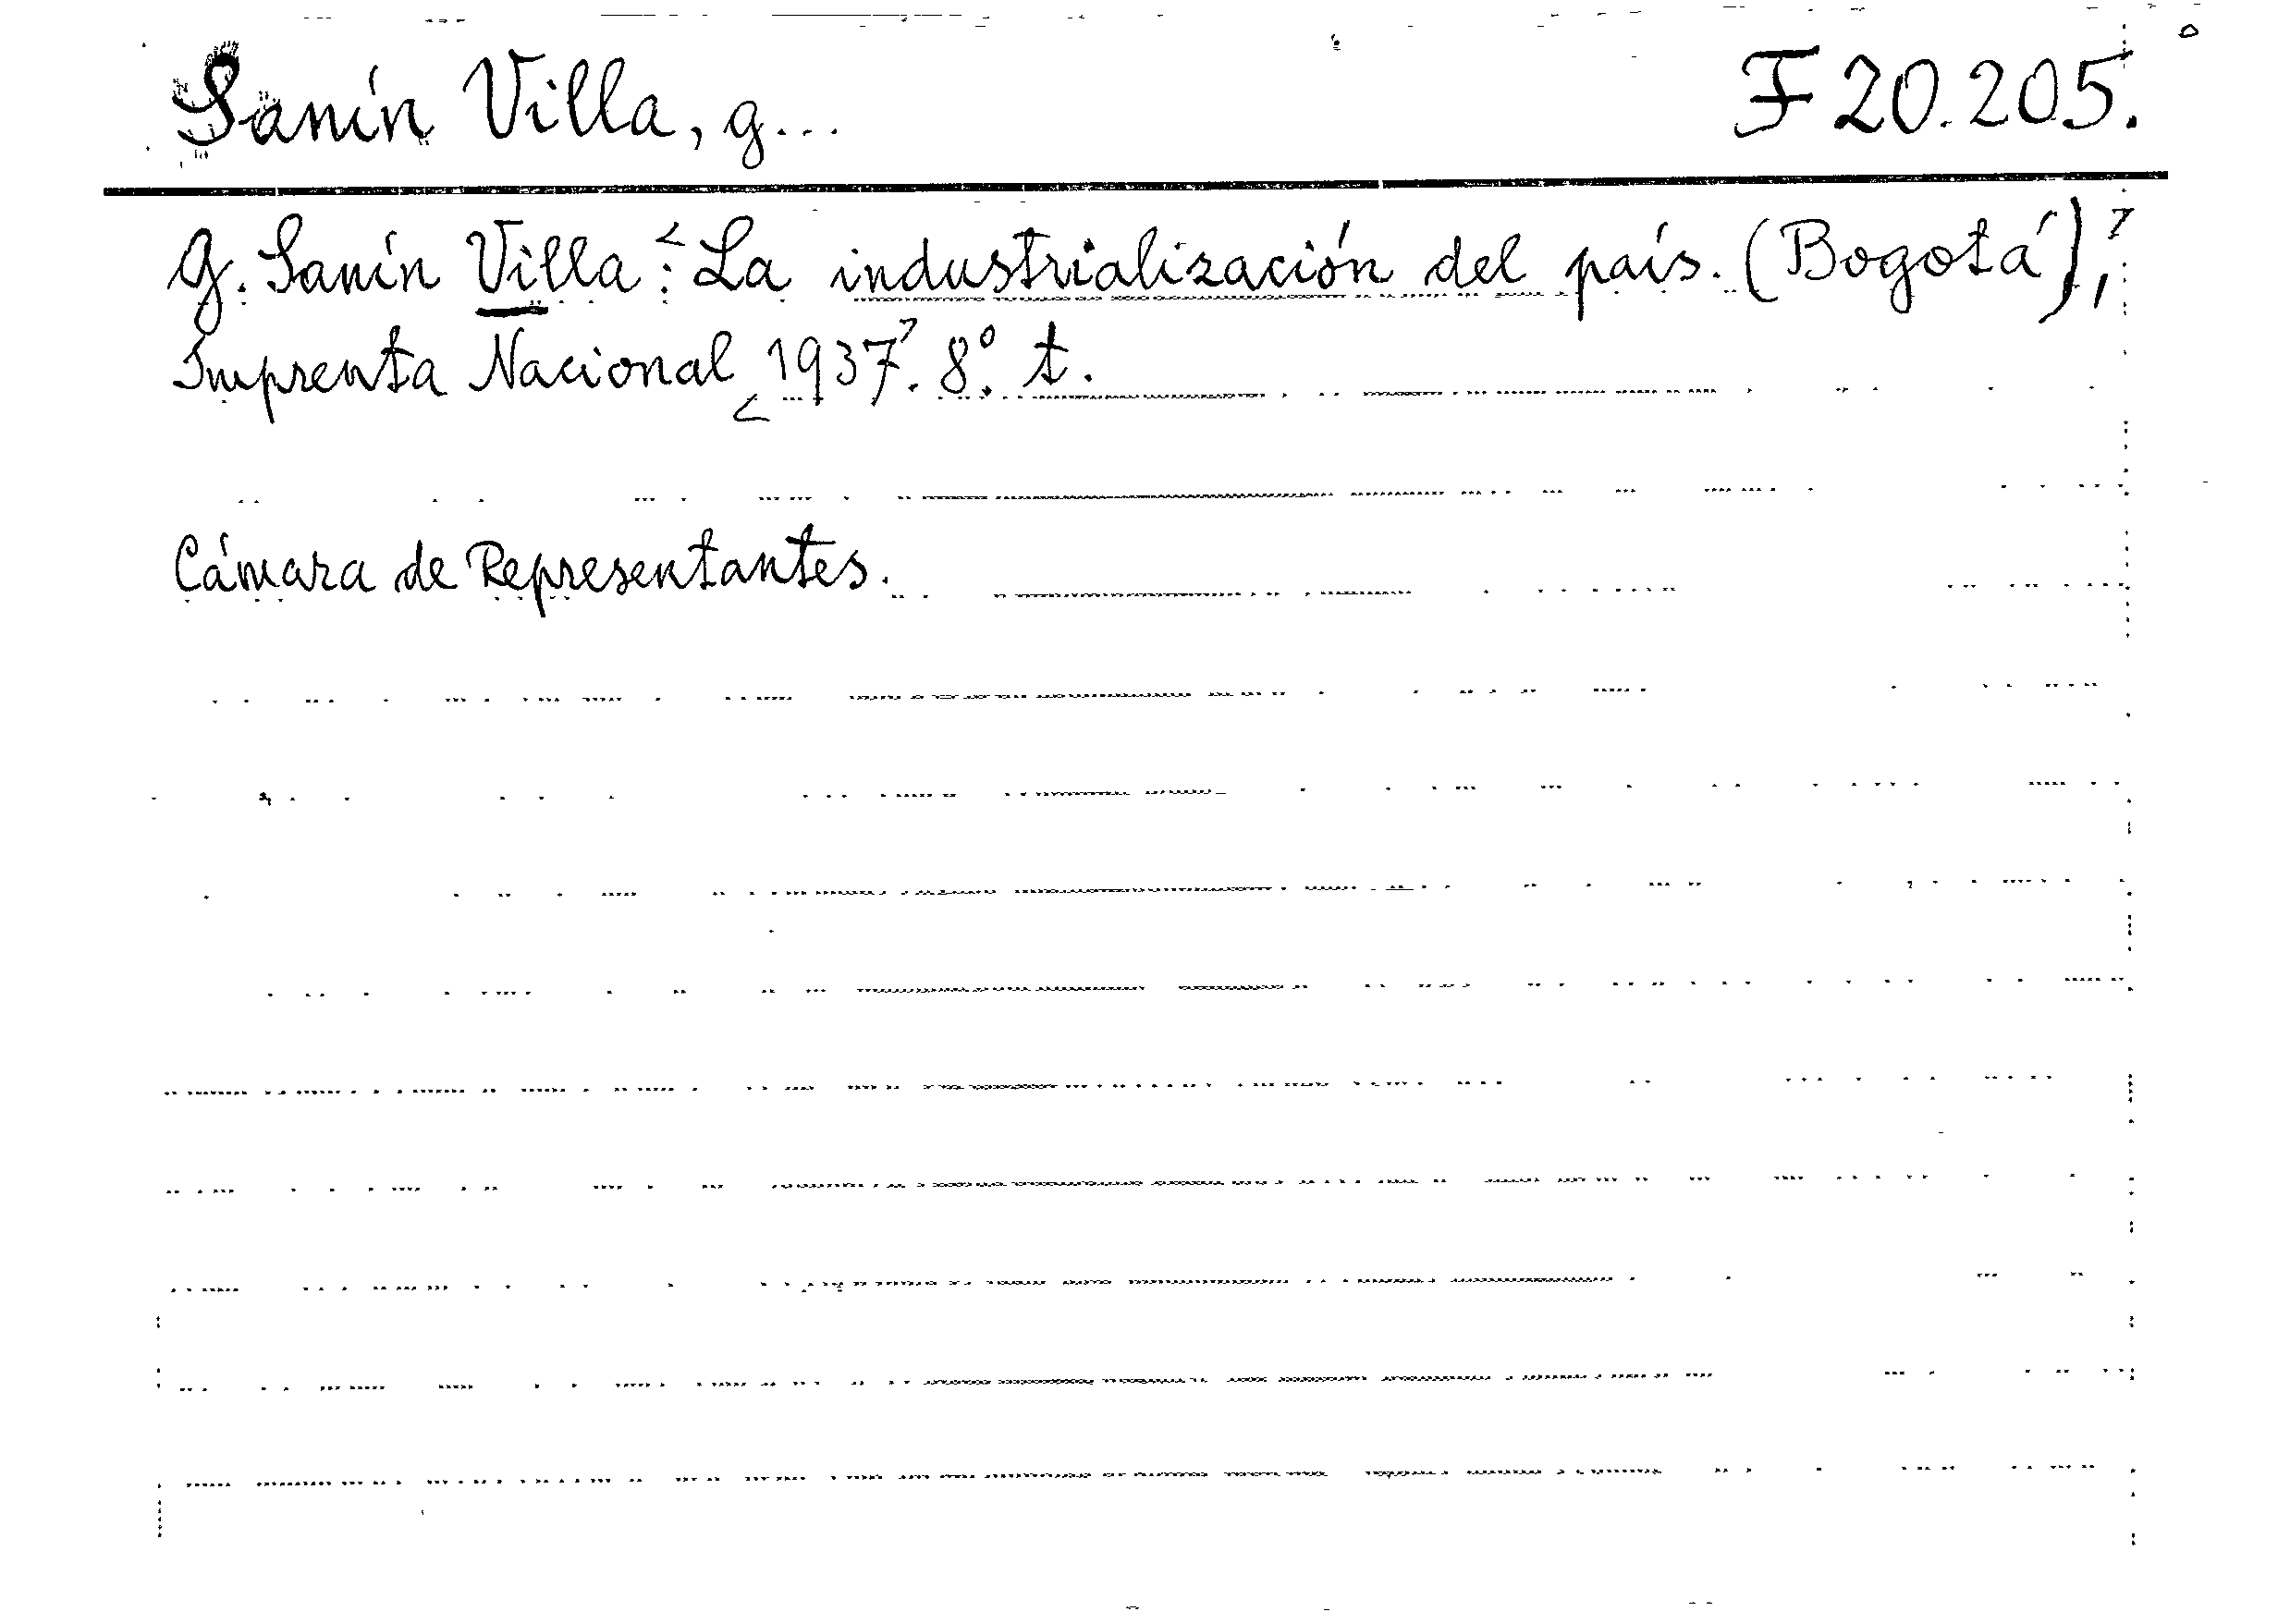 Sanín Villa, G...
F 20.205.
G. Sanín Villa: <La industrialización del país. (Bogotá),>
Imprenta Nacional <1937>. 8º. t.
Cámara de Representantes.